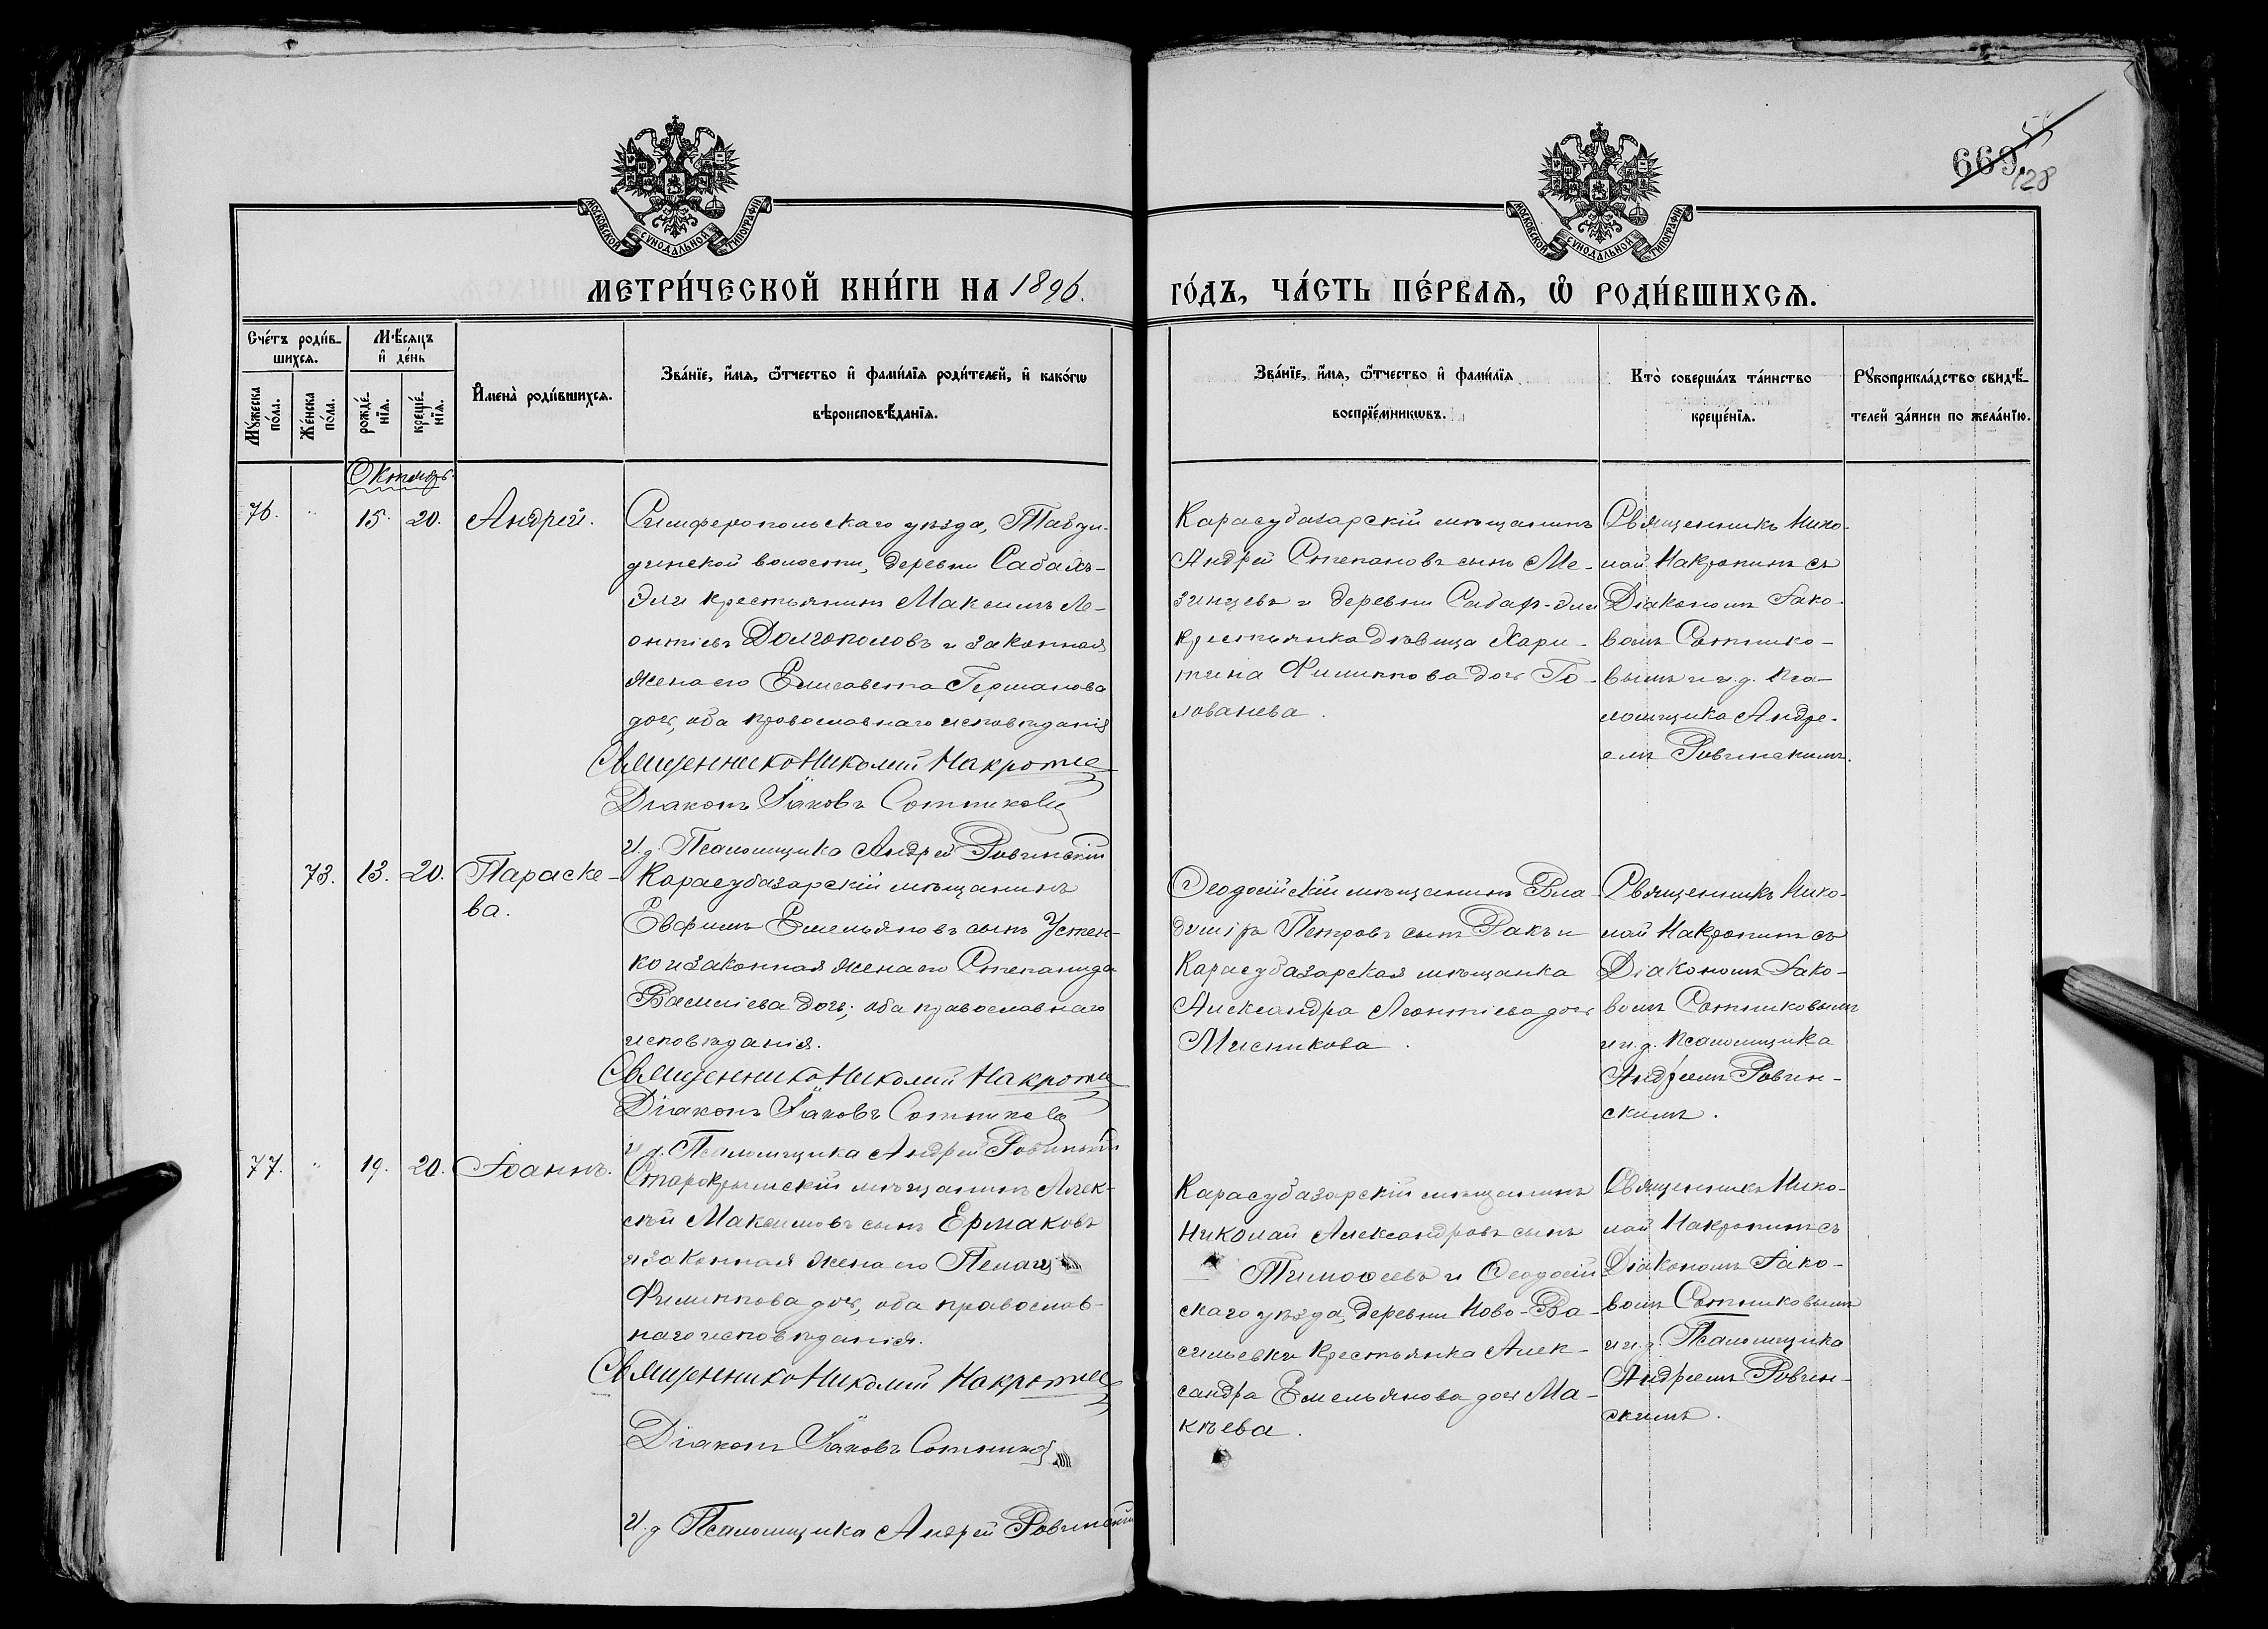 669
128
МОСКОВСКОЙ СУНОДАЛЬНОЙ ТИПОГРАФІИ
МОСКОВСКОЙ СУНОДАЛЬНОЙ ТИПОГРАФІИ
МЕТРИ́ЧЕСКОЙ КНИ́ГИ НА 1896.
ГО́ДЪ, ЧА́СТЬ ПЕ́РВАѦ, Ѡ РОДИ́ВШИХСѦ.
Сче́тъ роди́в-
шихсѧ.
Мꙋ́жеска по́ла.
Же́нска по́ла.
Мѣ́сяцъ
и҆ де́нь
рожде́-
нїѧ.
креще́-
нїѧ.
И҆мена̀ роди́вшихсѧ.
Зва́нїе, и҆́мѧ, ѻ҆́тчество и҆ фами́лїѧ роди́телей, и҆ како́гѡ
вѣроисповѣ́данїѧ.
Зва́нїе, и҆́мѧ, ѻ҆́тчество и҆ фами́лїѧ
воспрїе́мникѡвъ.
Кто̀ соверша́лъ та́инство
креще́нїѧ.
Рꙋкоприкла́дство свидѣ́-
телей за́писи по жела́нїю.
Октябрь.
76. " 15. 20. Андрей.
Симферопольскаго уѣзда, Табул-
динской волости, деревни Сабахъ-
Эли крестьянинъ Максимъ Ле-
онтіевъ Долгополовъ и законная
жена его Елисавета Германова
дочь, оба православнаго исповѣданія
Священникъ Николай Макроти
Діаконъ Іаковъ Сотниковъ
И. д. Псаломщика Андрей Ровинскій
Карасубазарскій мѣщанинъ
Андрей Степановъ сынъ Ме-
зинцевъ и деревни Сабах-Эли
крестьянка дѣвица Хари-
тина Филиппова дочь Го-
лованева.
Священникъ Нико-
лай Макротинъ съ
Діакономъ Іако-
вомъ Сотнико-
вымъ и и. д. Пса-
ломщика Андре-
емъ Ровинскимъ.
73. 13. 20. Параске-
ва.
Карасубазарскій мѣщанинъ
Евфимъ Емельяновъ сынъ Устен-
ко и законная жена его Степанида
Василіева дочь; оба православнаго
исповѣданія.
Священникъ Николай Макроти
Діаконъ Іаковъ Сотниковъ
и д. Псаломщика Андрей Ровинскій
Ѳеодосійскій мѣщанинъ Вла-
диміръ Петровъ сынъ Ракъ и
Карасубазарская мѣщанка
Александра Леонтіева дочь
Мисникова.
Священникъ Нико-
лай Макротинъ съ
Діакономъ Іако-
вомъ Сотниковымъ
и и. д. Псаломщика
Андреемъ Ровин-
скимъ.
77. " 19. 20. Іоаннъ.
Старокрымскій мѣщанинъ Алек-
сѣй Максимовъ сынъ Ермаковъ
и законная жена его Пелагія
Филиппова дочь, оба православ-
наго исповѣданія.
Священникъ Николай Макроти
Діаконъ Іаковъ Сотников
И. д Псаломщика Андрей Ровинскій
Карасубазарскій мѣщанинъ
Николай Александровъ сынъ
Тимоѳеевъ и Ѳеодосій-
скаго уѣзда, деревни Ново-Ва-
сильевки крестьянка Алек-
сандра Емельянова дочь Ма-
кѣева.
Священникъ Нико-
лай Макротинъ съ
Діакономъ Іако-
вомъ Сотниковымъ
и и. д. Псаломщика
Андреемъ Ровин-
скимъ.